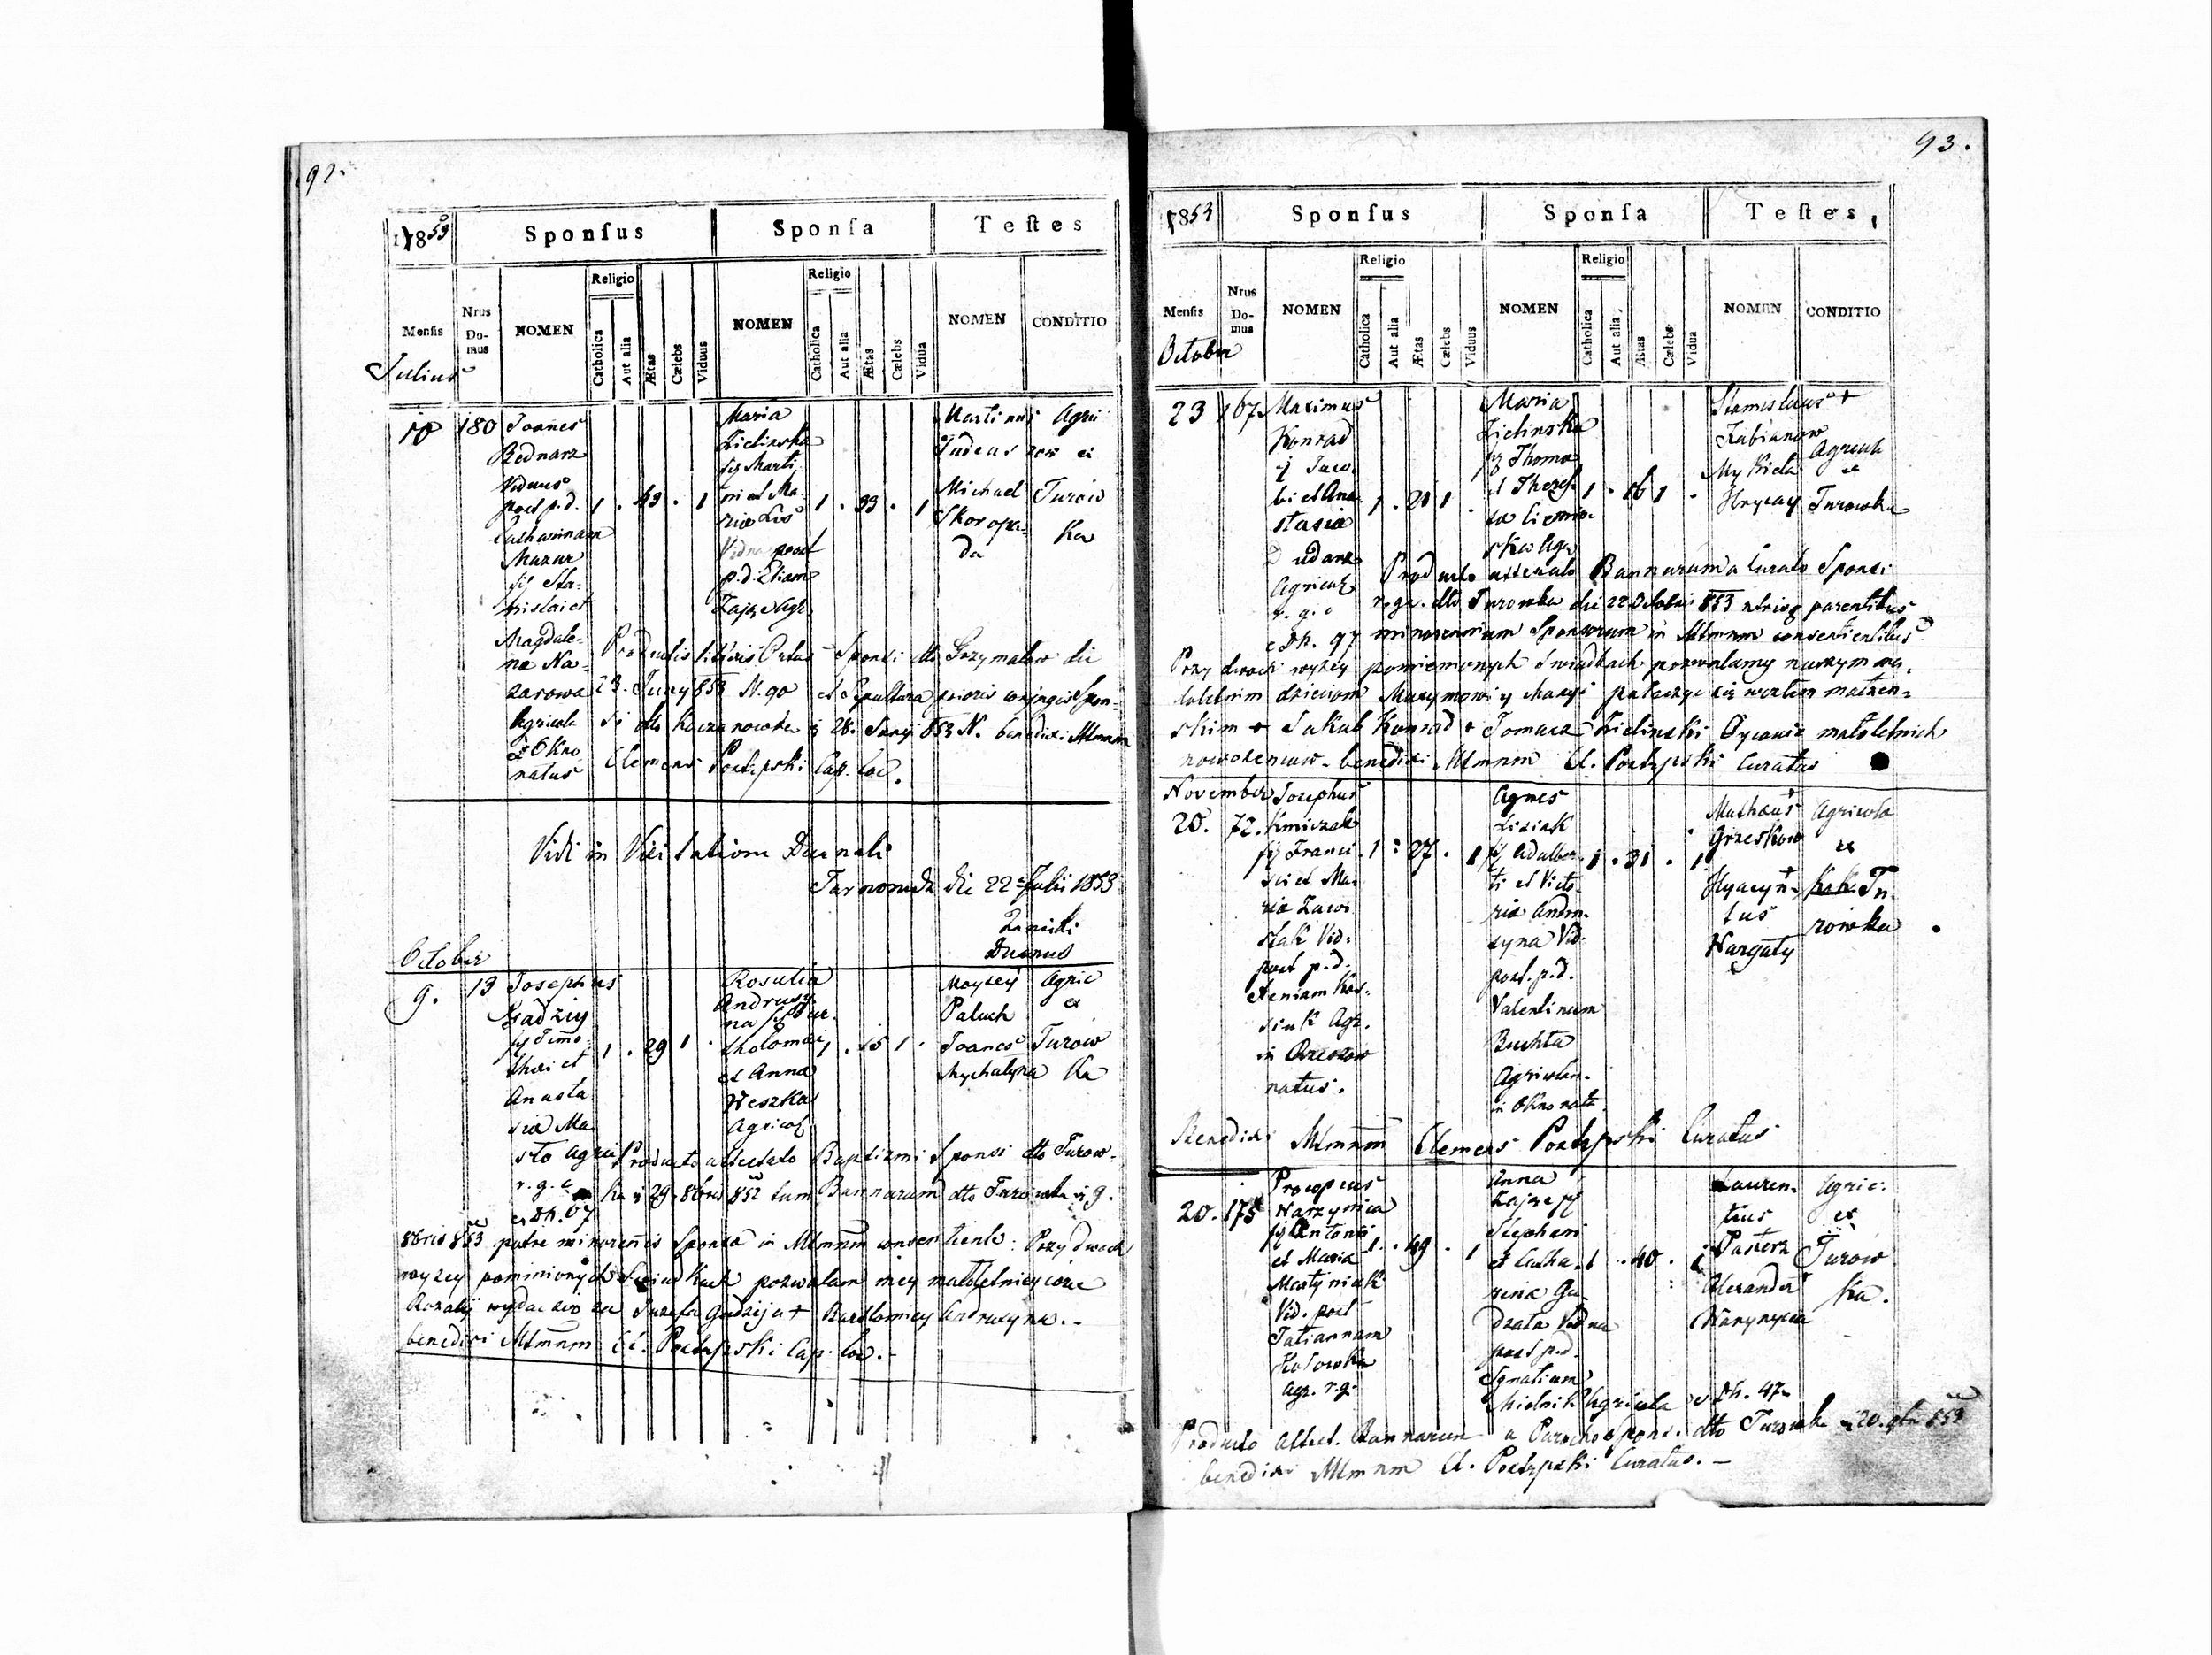 92.
1853
Sponsus
Sponsa
Testes
Mensis
Nrus Domus
NOMEN
Religio
Catholica
Aut alia
Ætas
Cælebs
Viduus
NOMEN
Religio
Catholica
Aut alia
Ætas
Cælebs
Vidua
NOMEN
CONDITIO
Julius
10 180 Joanes
Bednarz
Viduus
post p.d. 1 . 49 . 1
Catharinam
Mazur
fil Sta-
nislai et
Magdale-
na Na-
zarowa
Agricola
in Okno
natus
Maria
Zielinska
fil Marti
ni et Ma-
ria Lis 1 . 33 . 1
Vidua post
p.d. Eliam
Zając Agr.
Martinus
Judeus
Michael
Skoropa-
da
Agri
colæ ex
Turow
ka
Productis litteris Ortus Sponsi dto Grzymalow die
23. Junij 853 N. 90 et Sepultura prioris conjugis Spon-
si dto Kaczanowka 28. Junij 853 N. benedixi Mtmnm
Clemens Postępski Cap. loc.
Vidi in Visitatione Decanali
Tarnoruda die 22 Julii 1853
Decanus
October
9. 13 Josephus
Gadziy
fil Timo-
thei et 1 . 29 1 .
Anasta
sia Ma-
sło Agric
r. g. c
ex Dh. 07
Rosalia
Andruszy-
na fil Bar-
tholomæi 1 . 15 1 .
et Anna
Weszka
Agricol
Moysey
Paluch
Joanes
Mychalyna
Agric
ex
Turow
ka
Producto attestato Baptismi Sponsi dto Turow-
ka 29. 8bris 852 tum Bannarum dto Turowka 9.
8bris 853 patre minorennis Sponsa in Mtmnm consentiente: Przy dwoch
wyzey pominionych Swiadkach pozwalam mey małoletniey corce
Rozalij wydac się za Juzefa Gadzija + Bartłomiey Andruszyna. -
benedixi Mtmnm Cl. Postępski Cap. loc. -
93.
1853
Sponsus
Sponsa
Testes,
Mensis
Nrus Domus
NOMEN
Religio
Catholica
Aut alia
Ætas
Cælebs
Viduus
NOMEN
Religio
Catholica
Aut alia,
Ætas
Cælebs
Vidua
NOMEN
CONDITIO
October
23 167. Maximus
Konrad
fj Jaco-
bi et Ana- 1 . 21 1 .
stasia
Dudarz
Agricol
r. g. c
e Dh. 97
Maria
Zielinska
fj Thoma
et There- 1 . 16 1 .
sa Ziemia-
ska Agr
Stanislaus +
Fabianow
Mykieta
Hrycay
Agricola
ex
Turowka
Producto attestato Bannarum a Curato Sponsi
r. g. c. dto Turowka die 22 Octobris 853 utriusq parentibus
minorennium Sponsorum in Mtmnm consentientibus
Przy dwoch wyzey pomienionych swiadkach pozwalamy naszym ma-
loletnim dzieciom Maxymowi y Maryi połaczyc się węzłem małzen-
skim + Jakub Konrad + Tomasz Zielinski Oycowie małoletnich
nowożencow - benedixi Mtmnm Cl. Postępski Curatus
November Josephus
20. 72. Kmiczak
fj Franci- 1 : 27 . 1
sci et Ma-
ria Zawi-
slak Vid:
post p.d.
Xeniam Kos-
siuk Agr.
in Rzeszow
natus.
Agnes
Lisiak
fj Adalber- 1 . 31 . 1
ti et Victo-
ria Andru-
szyna Vid:
post. p.d.
Valentinum
Buchta
Agricolam
in Okno nata
Mathæus +
Grzeskow
Hyacyn- +
tus
Nargaty
Agricola
ex
Tu-
rowka
Benedixi Mtmnm Clemens Postępski Curatus
20. 175 Procopius
Warzynica
fj Antonii
et Maria 1 . 49 . 1
Martyniak
Vid. post
Tatiannam
Kosowska
Agr. r.g.
Anna
Zając fj
Stephani
et Catha- 1 . 40 . 1
rina Gu-
dzała Vidua
post p.d.
Ignatium
Mielnik Agricola e Dh. 47
Lauren-
tius
Pasterz
Alexander
Warynycia
Agric:
ex
Turow
ka.
Producto attest. Bannarum a Parocho sponsi dto Turowka 20. 9bris 853
benedixi Mtmnm Cl. Postępski Curatus. -